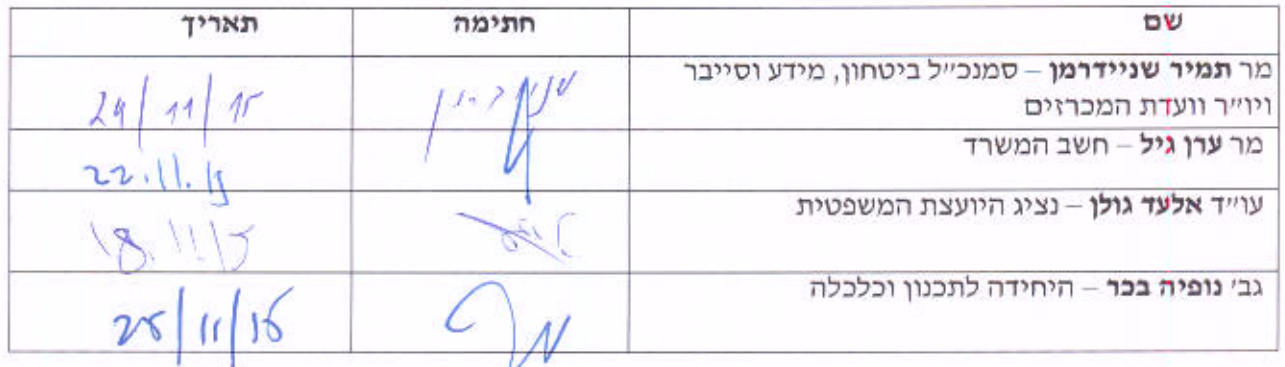 שם חתימה תאריך
מר תמיר שניידרמן – סמנכ״ל ביטחון, מידע וסייבר
ויו״ר וועדת המכרזים 24/11/15
מר ערן גיל – חשב המשרד 22.11.15
עו״ד אלעד גולן – נציג היועצת המשפטית 18.11.15
גב׳ נופיה בכר – היחידה לתכנון וכלכלה 25/11/15